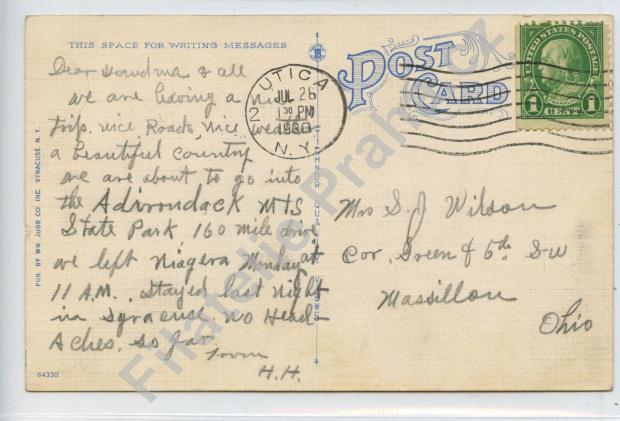 THIS SPACE FOR WRITING MESSAGES
POST CARD
UTICA
2
JUL 28
1 30 PM
1930
N.Y.
UNITED STATES POSTAGE
1 CENT 1
Dear Grandma & all
we are having a nice
trip, nice Roads, nice weather
a beautiful country
we are about to go into
the Adirondack MTS
State Park 160 mile drive
we left Niagera Monday at
11 A.M. Stayed last night
in Syracuse. No Head-
Aches. so far
from
H.H.
Mrs S. J Wilson
Cor. Green & 6th SW
Massillon
Ohio
PUB. BY WM. JUBB CO. INC. SYRACUSE, N. Y.
64330
Filatelie Praha.cz